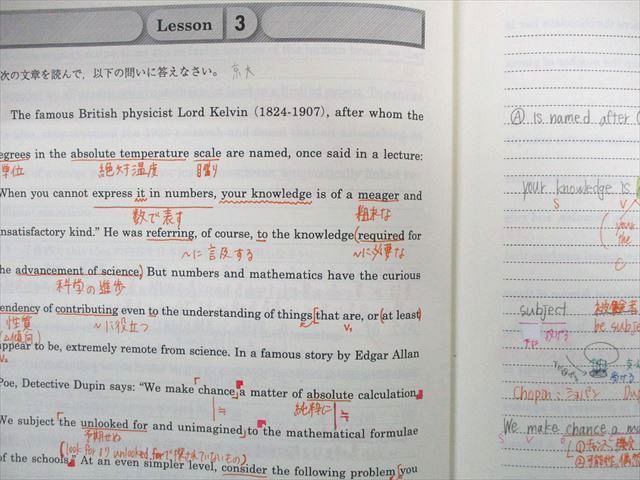 Lesson 3
次の文章を読んで，以下の問いに答えなさい。 京大
The famous British physicist Lord Kelvin (1824-1907), after whom the
egrees in the absolute temperature scale are named, once said in a lecture:
単位 絶対温度 目盛り
When you cannot express it in numbers, your knowledge is of a meager and
数で表す 粗末な
nsatisfactory kind." He was referring, of course, to the knowledge (required for
〜に言及する 〜に必要な
he advancement of science.) But numbers and mathematics have the curious
科学の進歩
endency of contributing even to the understanding of things [that are, or (at least)
性質 〜に役立つ V₁
(傾向)
appear to be, extremely remote from science. In a famous story by Edgar Allan
V₂
Poe, Detective Dupin says: "We make chance a matter of absolute calculation.
≒ 純粋に ≒
We subject the unlooked for and unimagined to the mathematical formulae
予期せぬ
of the schools." At an even simpler level, consider the following problem you
Ⓐ is named after
your knowledge is
S V
subject 被験者
be subje
Chopin: ショパン Du
We make chance a ma
S V